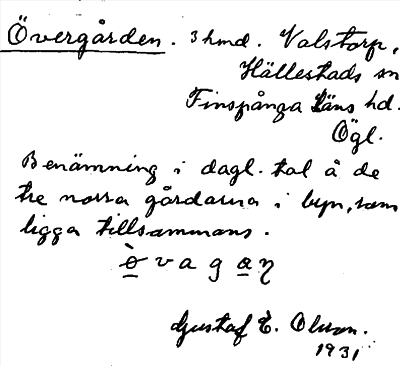 Övergården. 3 hmd. Valstorp,
Hällestads sn
Finspånga läns hd.
Ögl.
Benämning i dagl. tal å de
tre norra gårdarna i byn, som
ligga tillsammans.
ø̀vagaŋ
Gustaf E. Olson.
1931